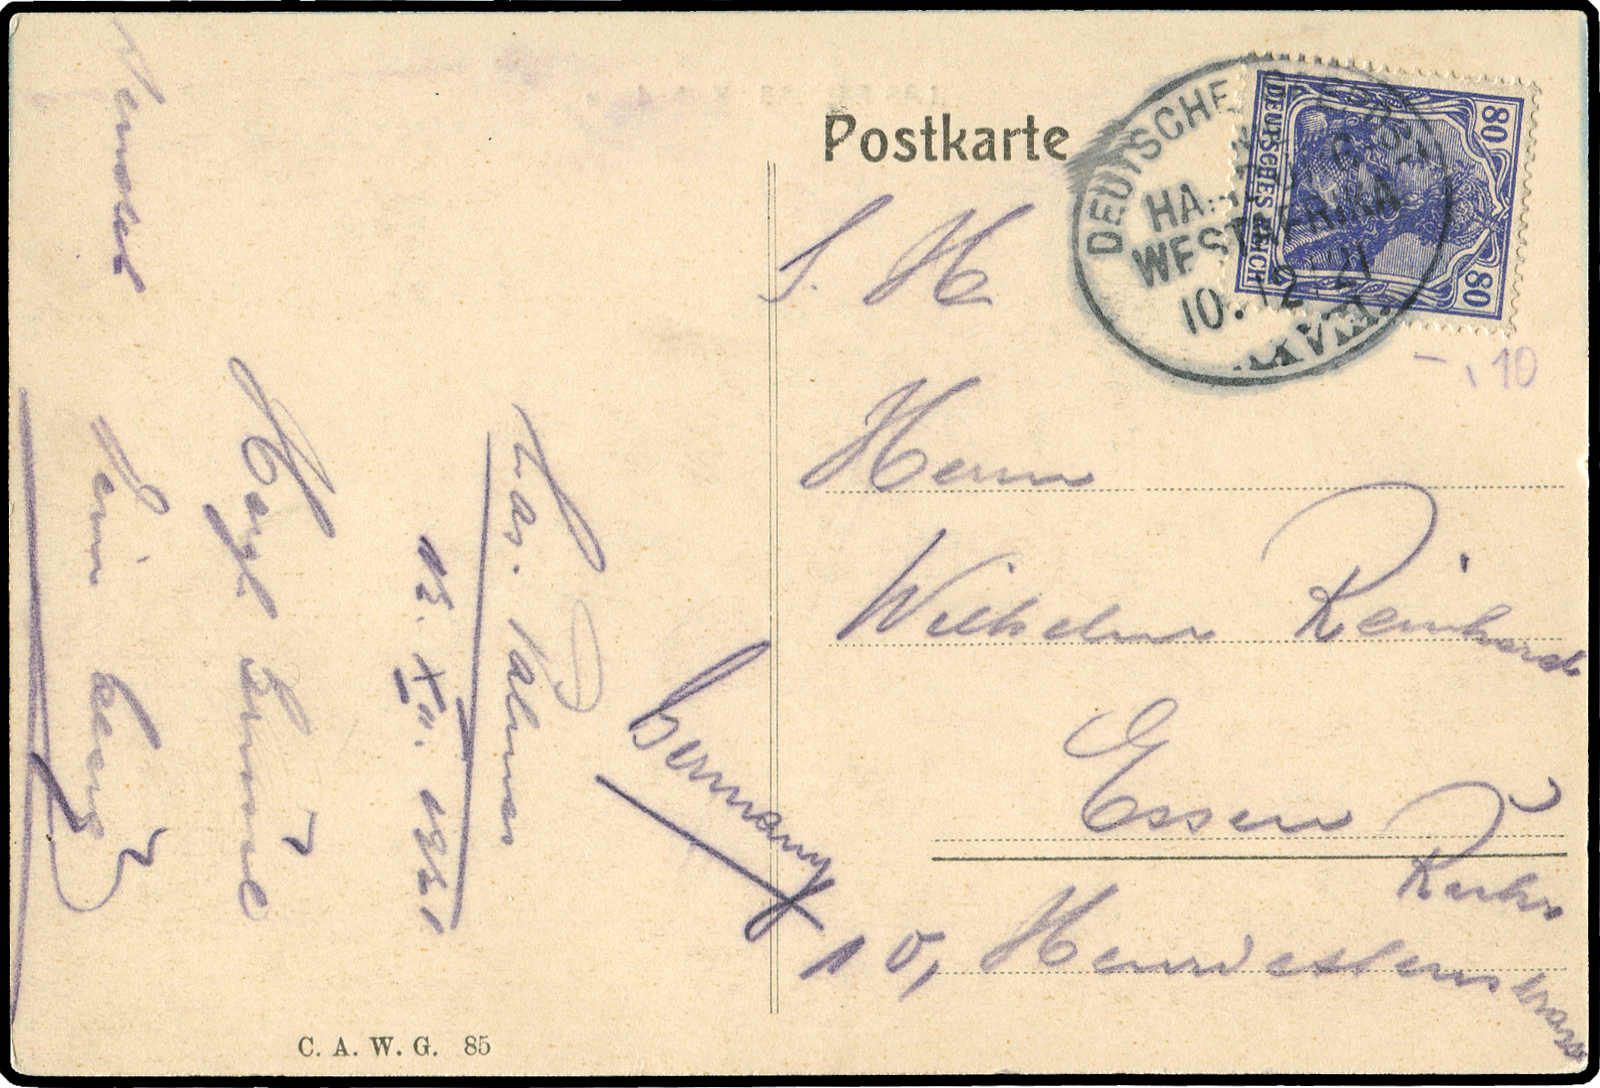 Postkarte
DEUTSCHE SEEPOST
WESTAFRIKA
10.12.21
XXVIII
80
DEUTSCHES REICH
80
10
S. H
Herrn
Wilhelm Reinhard
Essen
Ruhr
10, Henriettenstrasse
Germany
Las Palmas
13. XII. 1921
Herzl. Grüsse
Dein
C. A. W. G. 85